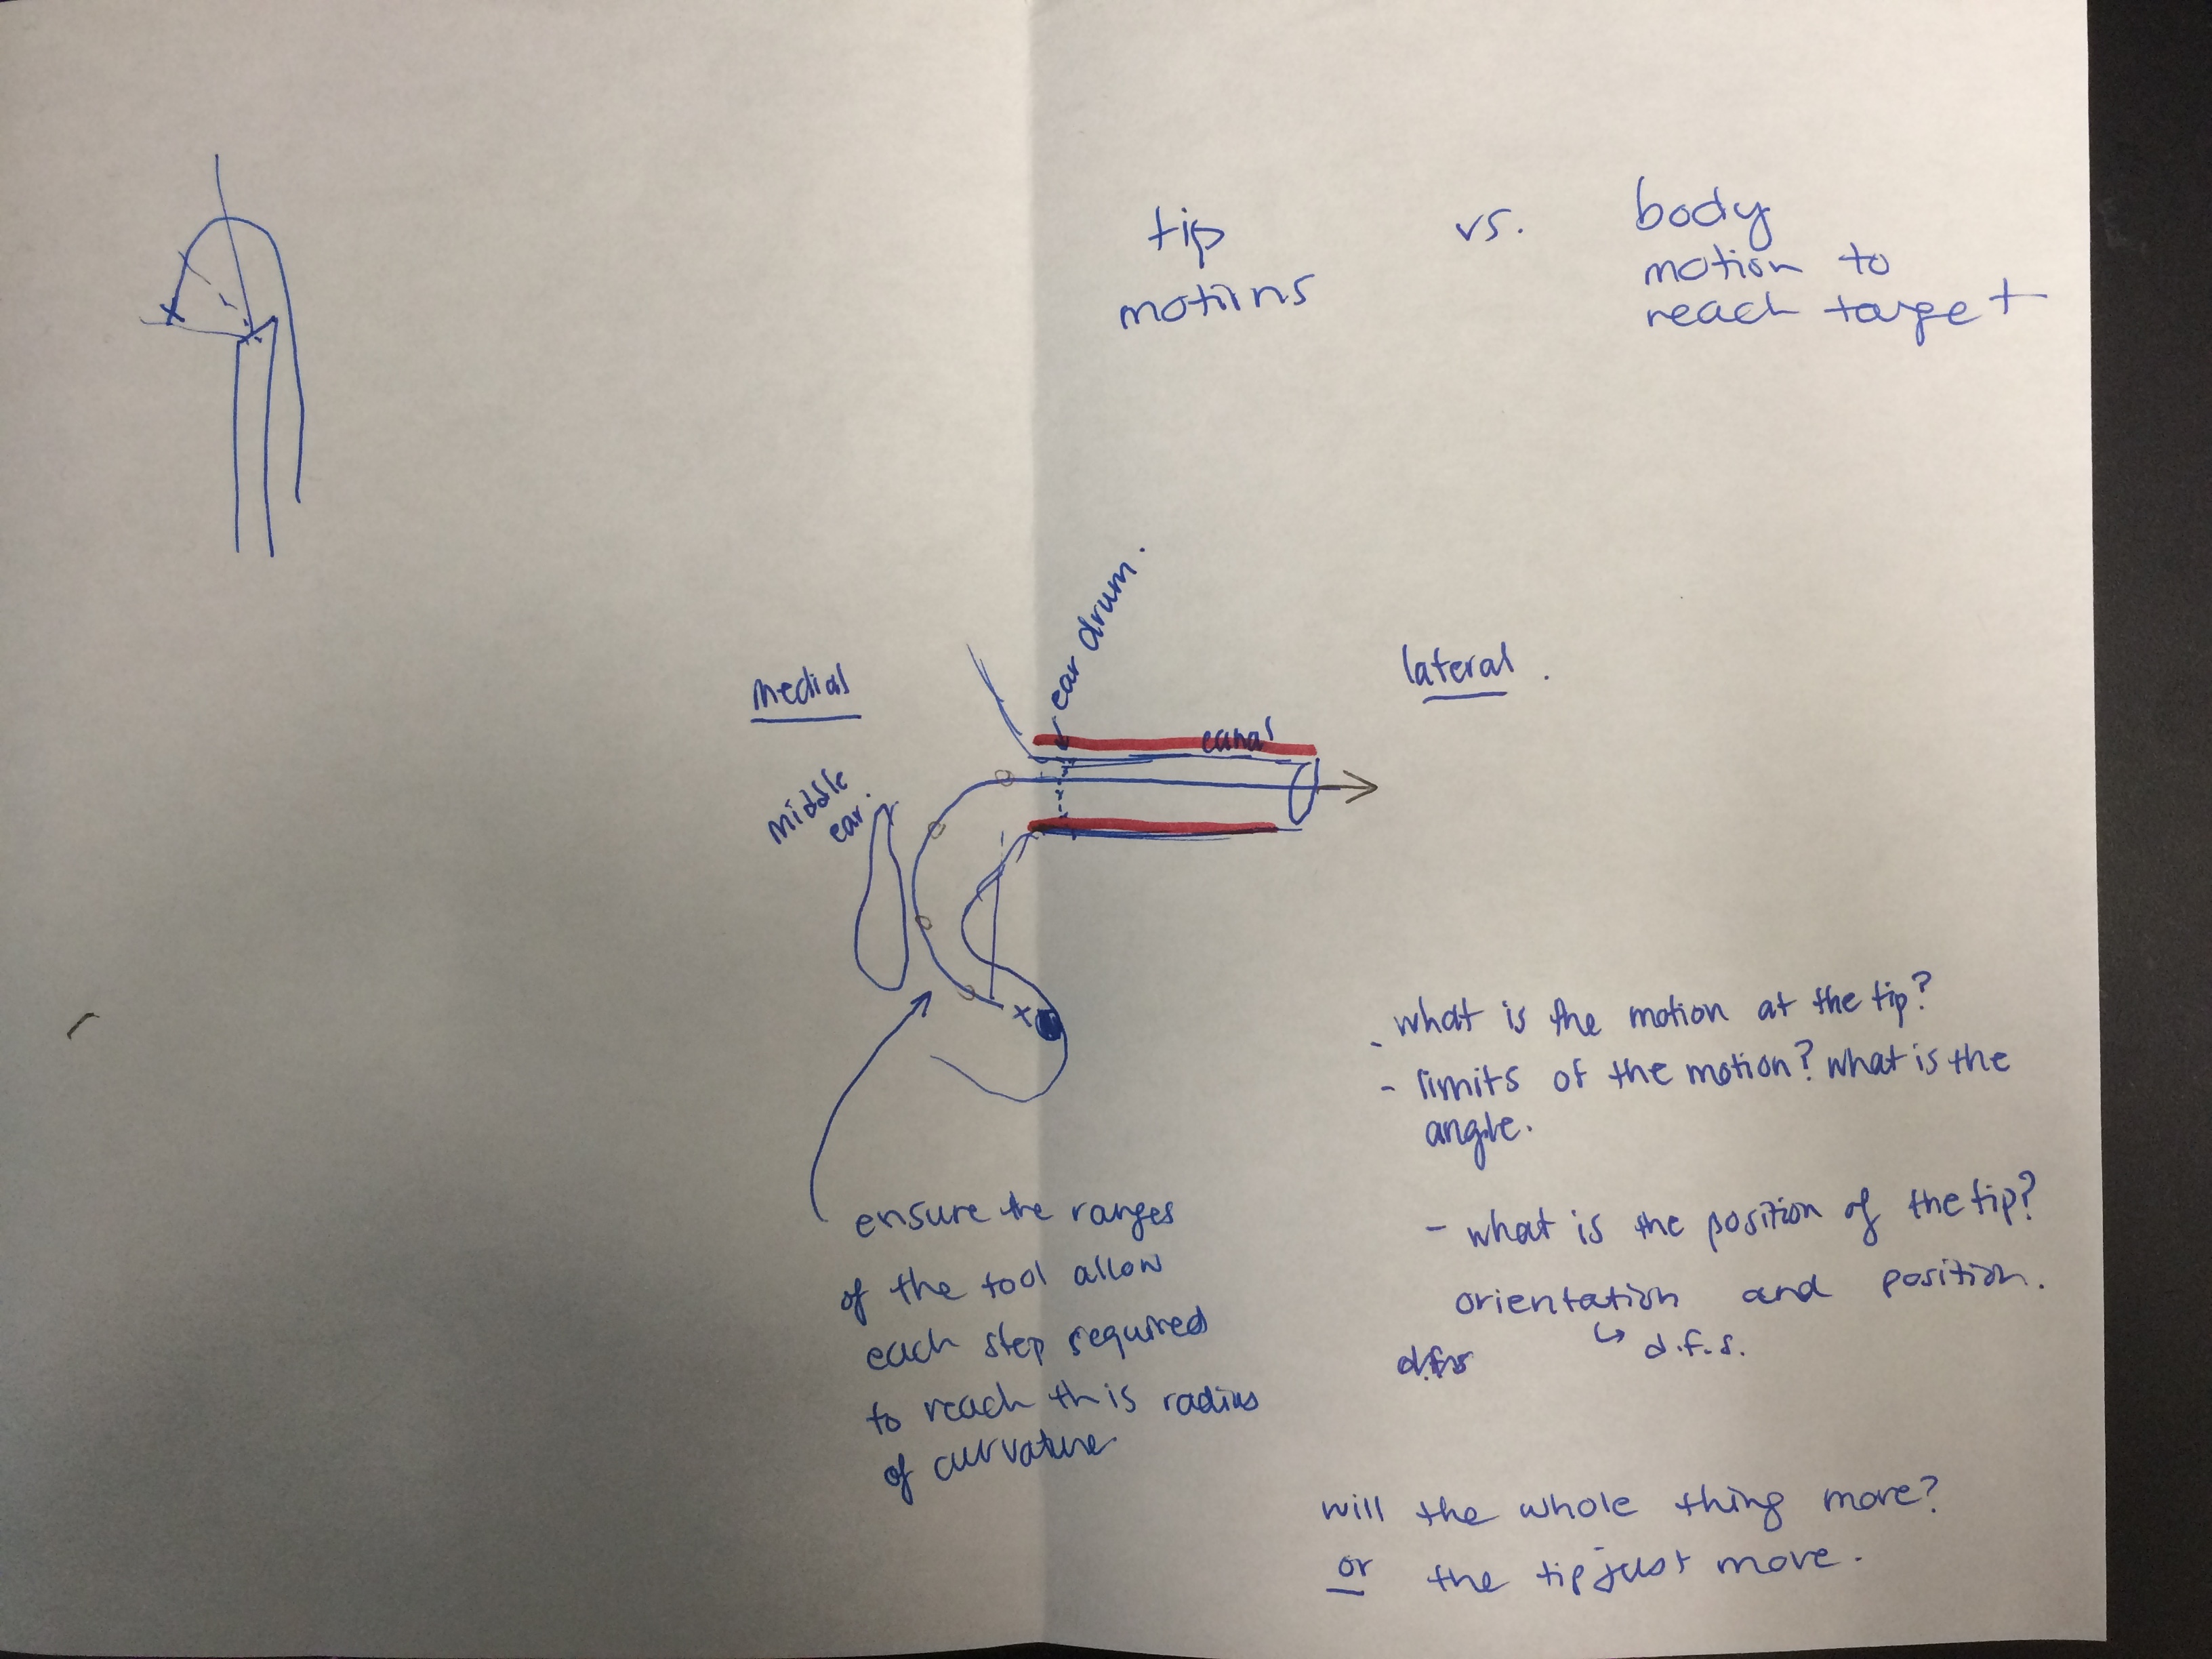 tip
motions
vs.
body
motion to
reach target
medial
lateral.
middle
ear.
ear drum.
canal
ensure the ranges
of the tool allow
each step required
to reach this radius
of curvature
- what is the motion at the tip?
- limits of the motion? what is the
angle.
- what is the position of the tip?
orientation and position.
↳ d.f.s.
will the whole thing move?
or the tip just move.